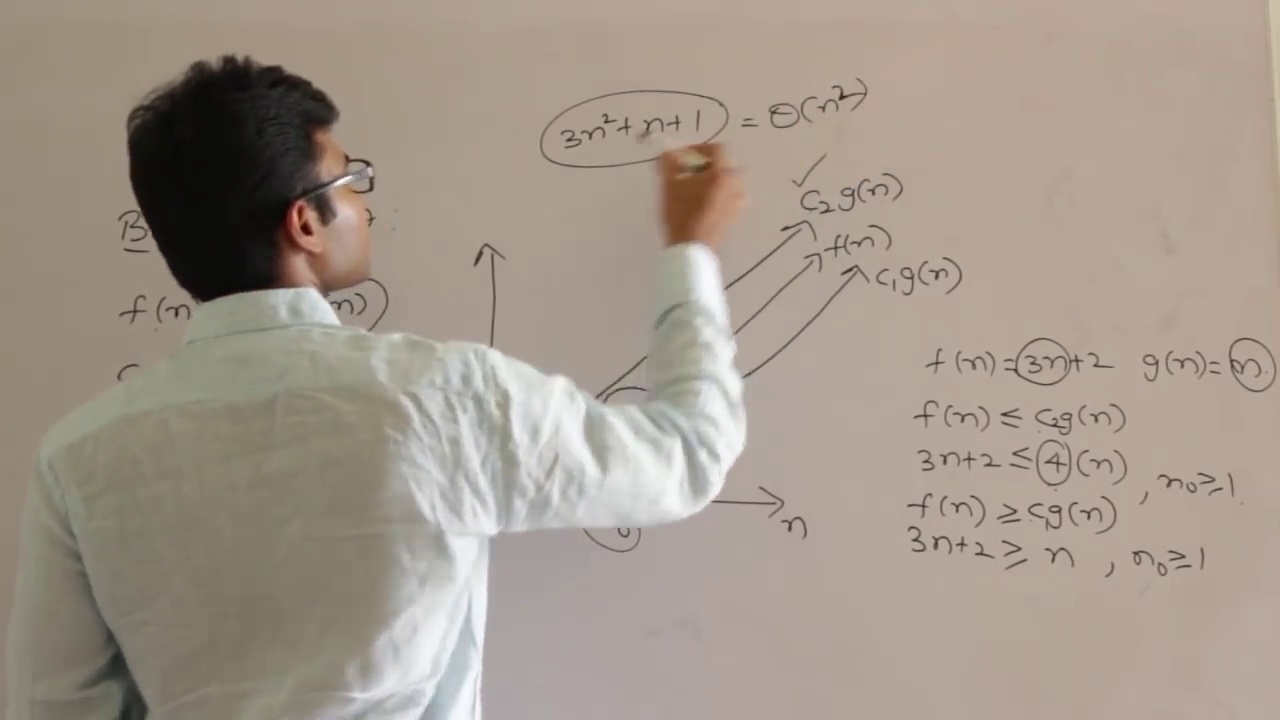 3n²+n+1 = Θ(n²)
c₂g(n)
f(n)
c₁g(n)
B
f(n n)
n
f(n)=3n+2 g(n)=n.
f(n) ≤ c₂g(n)
3n+2 ≤ 4(n) , n₀≥1
f(n) ≥ c₁g(n)
3n+2 ≥ n , n₀≥1